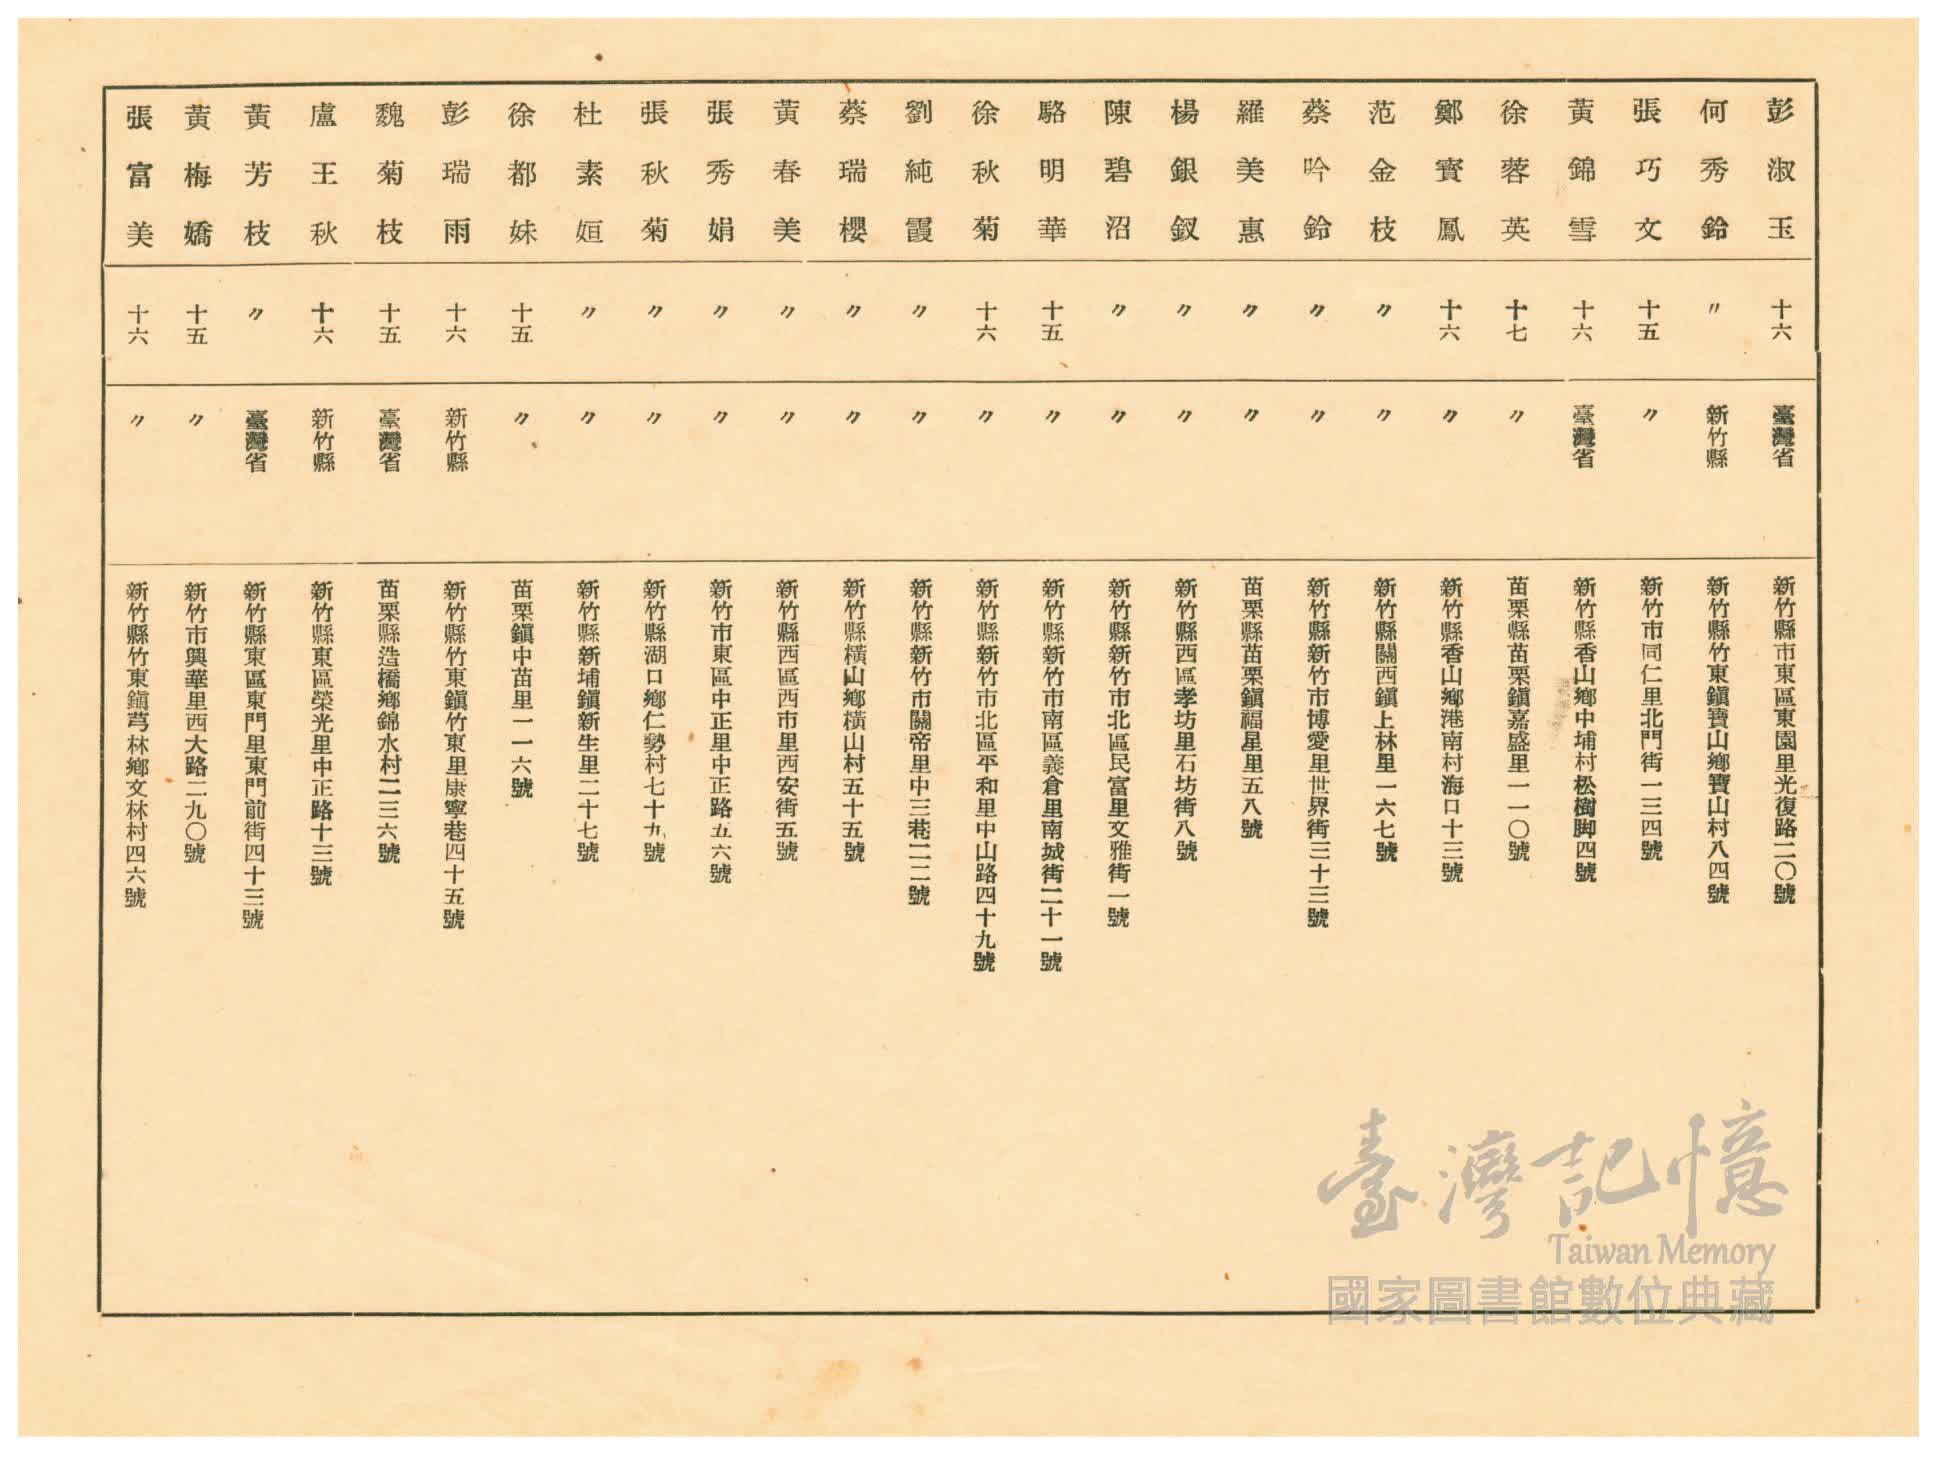 彭淑玉 十六 臺灣省 新竹縣市東區東園里光復路二〇號
何秀鈴 〃 新竹縣 新竹縣竹東鎭寶山鄕寶山村八四號
張巧文 十五 〃 新竹市同仁里北門街一三四號
黃錦雪 十六 臺灣省 新竹縣香山鄕中埔村松樹脚四號
徐蓉英 十七 〃 苗栗縣苗栗鎭嘉盛里一一〇號
鄭寳鳳 十六 〃 新竹縣香山鄕港南村海口十三號
范金枝 〃 〃 新竹縣關西鎭上林里一六七號
蔡吟鈴 〃 〃 新竹縣新竹市博愛里世界街三十三號
羅美惠 〃 〃 苗栗縣苗栗鎭福星里五八號
楊銀釵 〃 〃 新竹縣西區孝坊里石坊街八號
陳碧沼 〃 〃 新竹縣新竹市北區民富里文雅街一號
駱明華 十五 〃 新竹縣新竹市南區義倉里南城街二十一號
徐秋菊 十六 〃 新竹縣新竹市北區平和里中山路四十九號
劉純霞 〃 〃 新竹縣新竹市關帝里中三巷二二號
蔡瑞櫻 〃 〃 新竹縣橫山鄕橫山村五十五號
黃春美 〃 〃 新竹縣西區西市里西安街五號
張秀娟 〃 〃 新竹市東區中正里中正路五六號
張秋菊 〃 〃 新竹縣湖口鄕仁勢村七十九號
杜素姮 〃 〃 新竹縣新埔鎭新生里二十七號
徐都妹 十五 〃 苗栗鎭中苗里一一六號
彭瑞雨 十六 新竹縣 新竹縣竹東鎭竹東里康寧巷四十五號
魏菊枝 十五 臺灣省 苗栗縣造橋鄕錦水村二三六號
盧王秋 十六 新竹縣 新竹縣東區榮光里中正路十三號
黃芳枝 〃 臺灣省 新竹縣東區東門里東門前街四十三號
黃梅嬌 十五 〃 新竹市興華里西大路二九〇號
張富美 十六 〃 新竹縣竹東鎭芎林鄕文林村四六號
臺灣記憶
Taiwan Memory
國家圖書館數位典藏